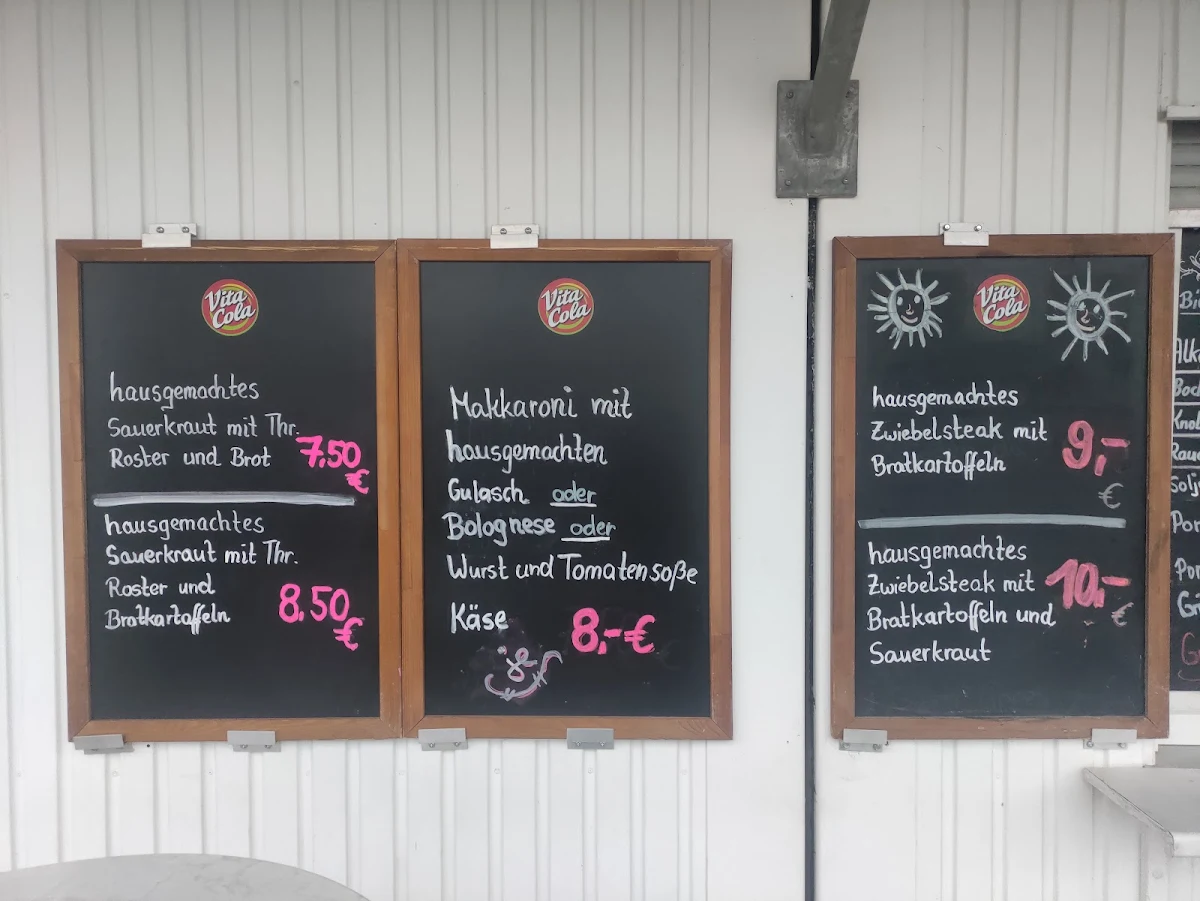 Vita Cola
hausgemachtes
Sauerkraut mit Thr.
Roster und Brot
7,50
€
hausgemachtes
Sauerkraut mit Thr.
Roster und
Bratkartoffeln
8,50
€
Vita Cola
Makkaroni mit
hausgemachten
Gulasch oder
Bolognese oder
Wurst und Tomatensoße
Käse
8,-€
je
Vita Cola
hausgemachtes
Zwiebelsteak mit
Bratkartoffeln
9,-
€
hausgemachtes
Zwiebelsteak mit
Bratkartoffeln und
Sauerkraut
10,-
€